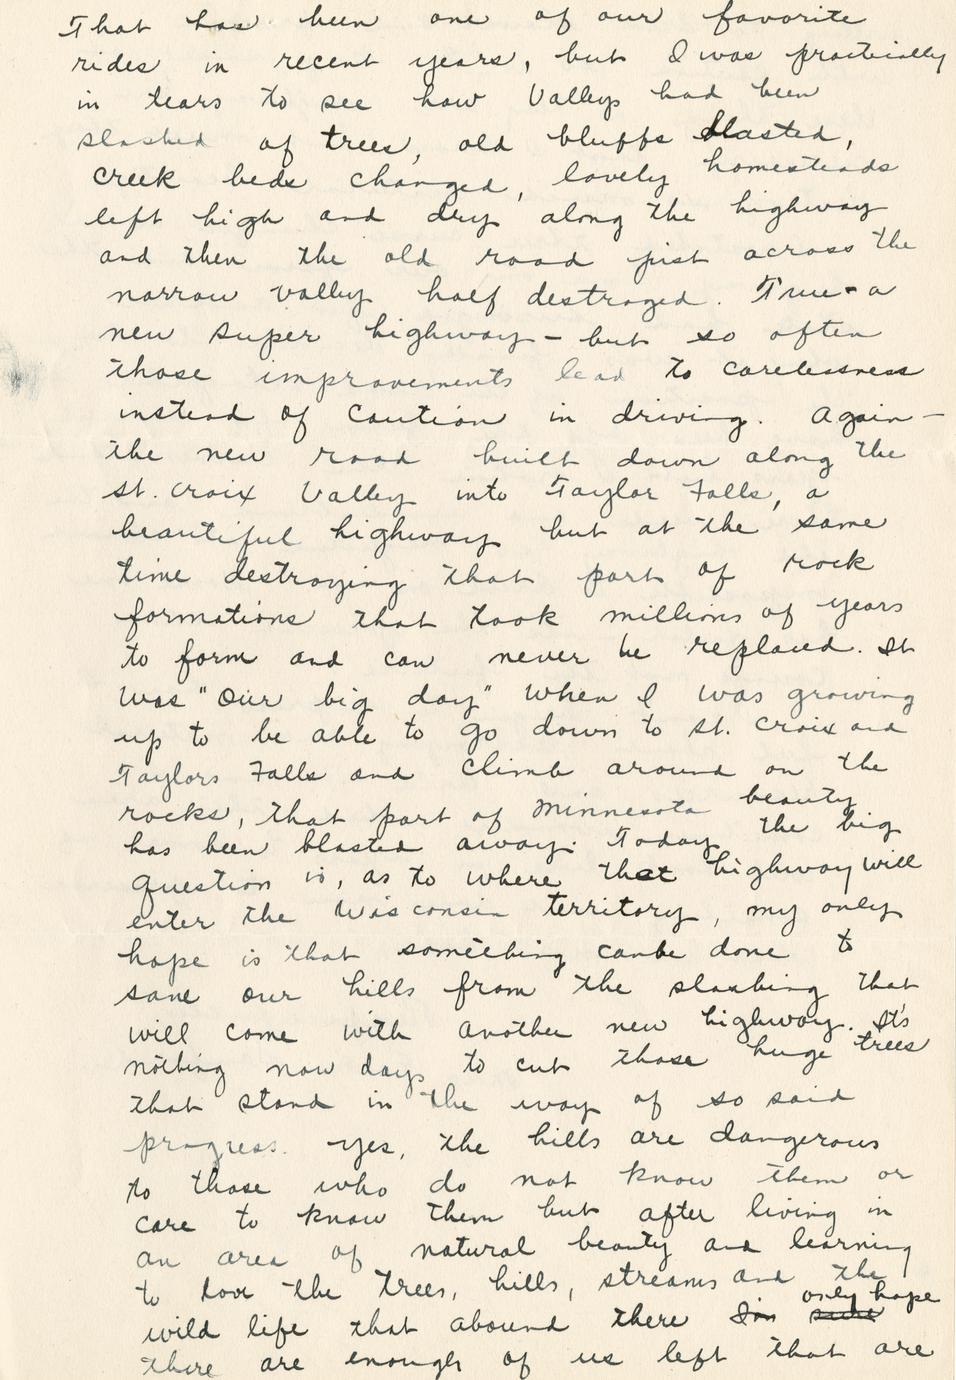 That has been one of our favorite
rides in recent years, but I was practically
in tears to see how Valleys had been
slashed of trees, old bluffs blasted,
creek beds changed, lovely homesteads
left high and dry along the highway
and then the old road just across the
narrow valley half destroyed. True - a
new super highway - but so often
those improvements lead to carelessness
instead of caution in driving. Again -
the new road built down along the
St. Croix Valley into Taylor Falls, a
beautiful highway but at the same
time destroying that part of rock
formations that took millions of years
to form and can never be replaced. It
was "our big day" when I was growing
up to be able to go down to St. Croix and
Taylors Falls and climb around on the
rocks, that part of Minnesota beauty
has been blasted away. Today the big
question is, as to where that highway will
enter the Wisconsin territory, my only
hope is that something can be done to
save our hills from the slashing that
will come with another new highway. It's
nothing now days to cut those huge trees
that stand in the way of so said
progress. Yes, the hills are dangerous
to those who do not know them or
care to know them but after living in
an area of natural beauty and learning
to love the trees, hills, streams and the
wild life that abound there I'm sure only hope
there are enough of us left that are